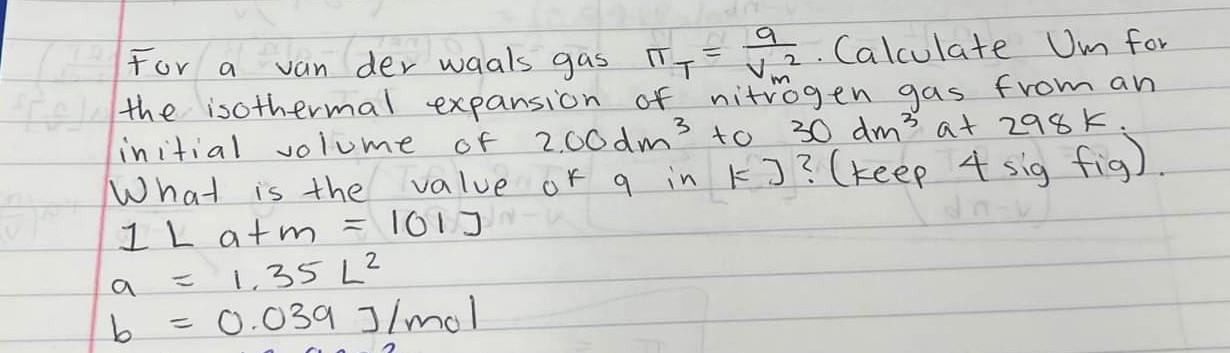 For a van der waals gas π_T = a/V_m². Calculate Um for
the isothermal expansion of nitrogen gas from an
initial volume of 2.00dm³ to 30 dm³ at 298K.
What is the value of q in kJ? (keep 4 sig fig).
1 L atm = 101J
a = 1.35 L²
b = 0.039 J/mol